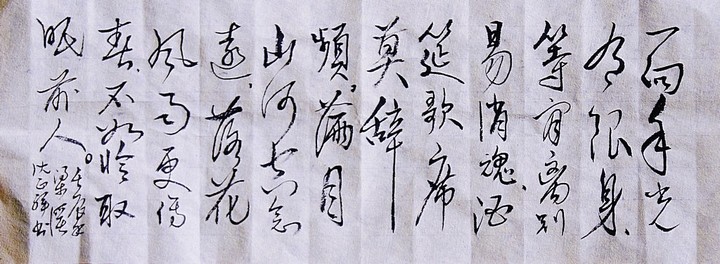 一向年光
有限身
等闲离别
易消魂、酒
筵歌席
莫辞
頻。满目
山河空念
遠、落花
风雨更傷
春、不如怜取
眼前人。
梁溪